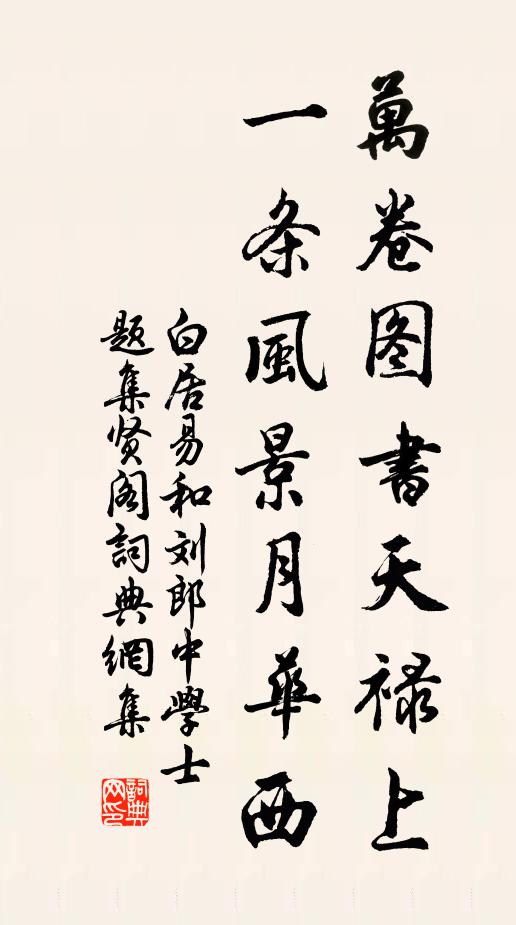 萬卷图書天禄上
一条風景月華西
白居易和刘郎中學士
题集贤阁詞典網集
詞典
网印